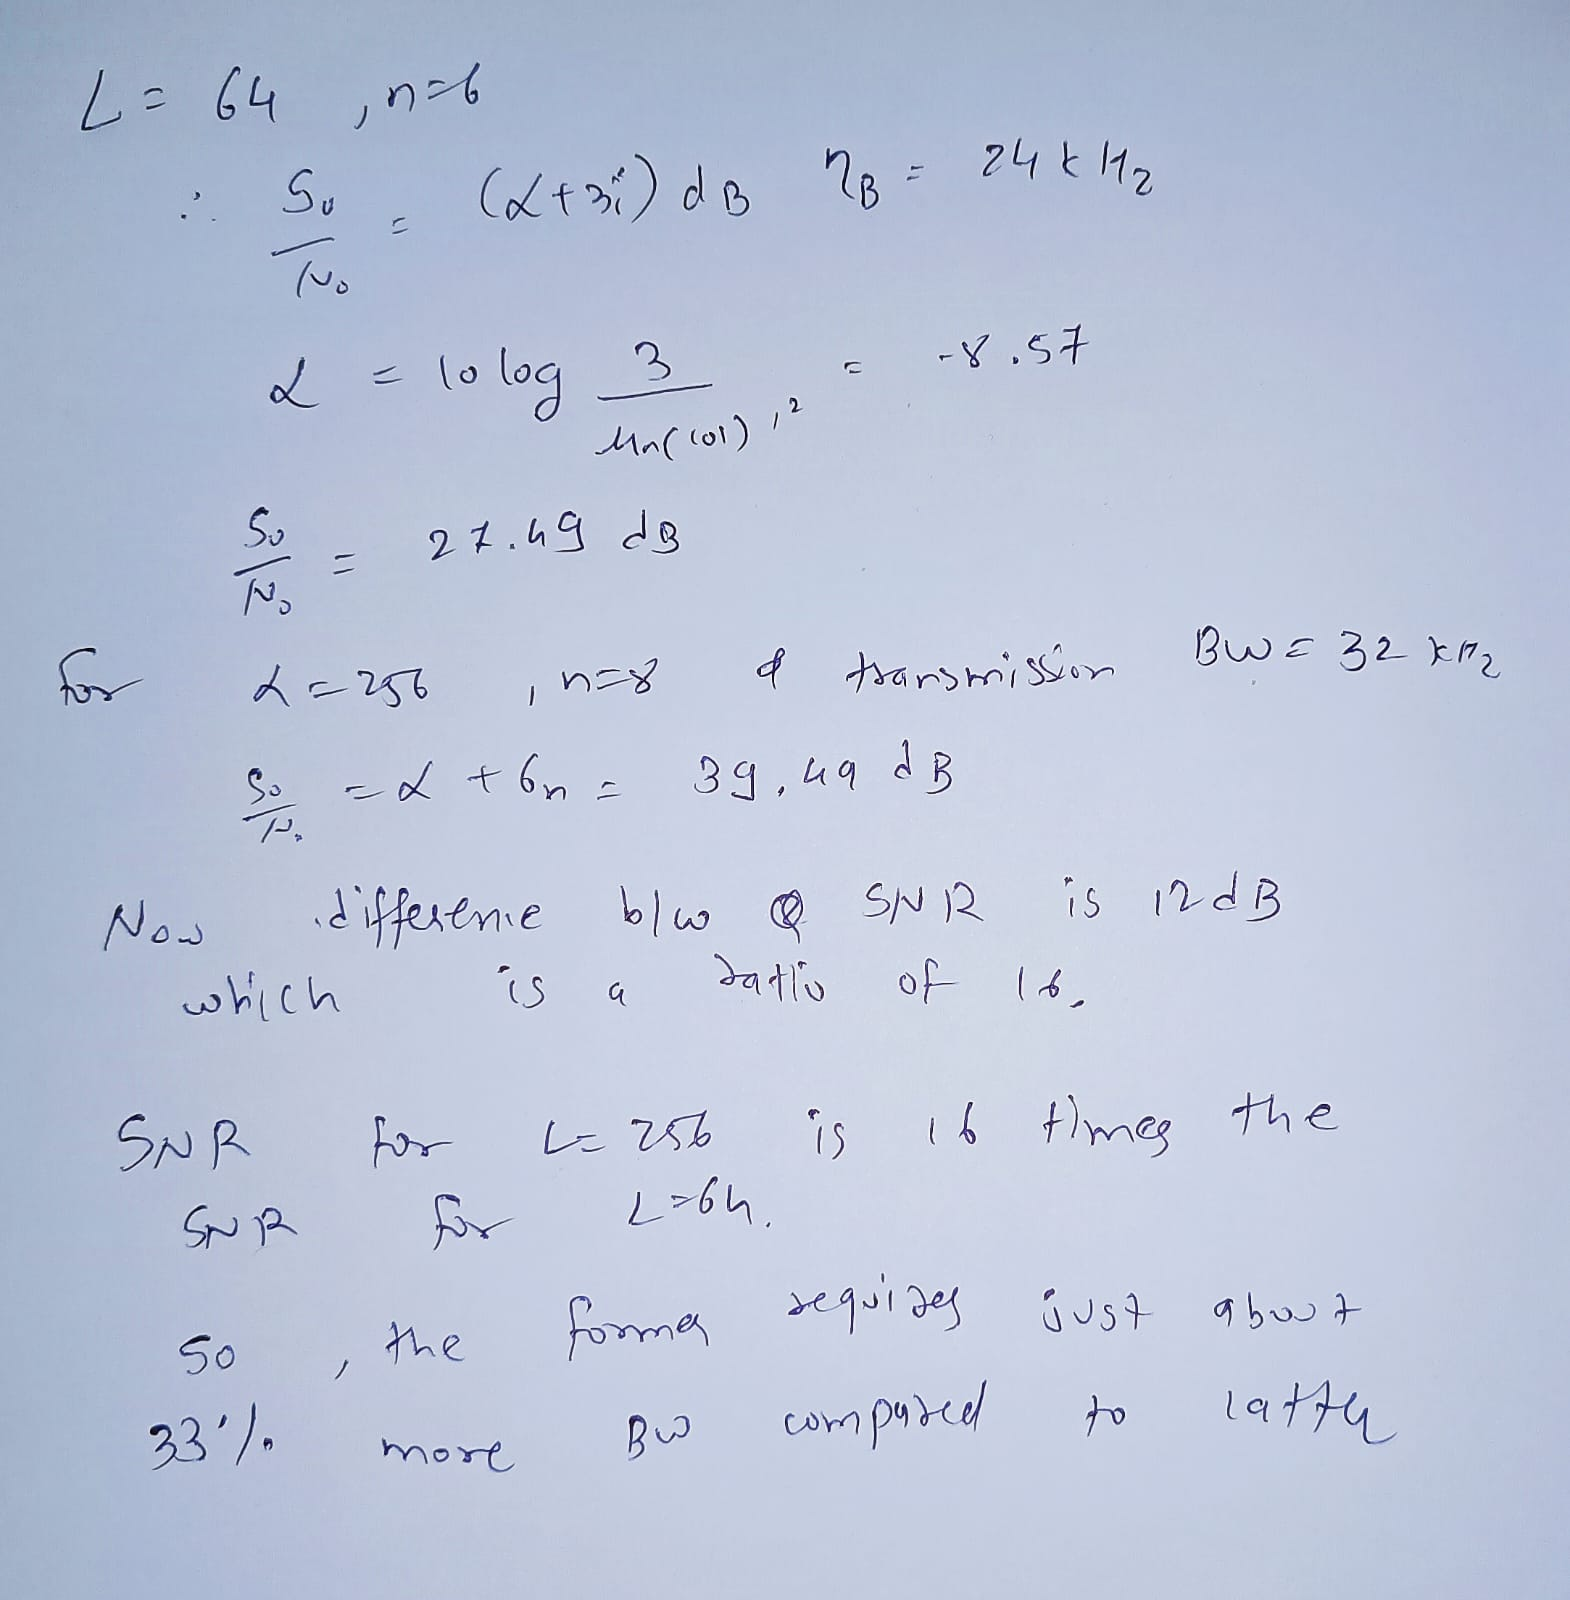 L = 64 , n=6
∴ So/No = (α+3i) dB nB = 24 k Hz
α = 10 log 3/ln(101),² = -8.57
So/No = 27.49 dB
for α = 256 , n=8 & transmission BW = 32 kHz
So/No = α + 6n = 39.49 dB
Now difference b/w SNR is 12 dB
which is a ratio of 16.
SNR for L= 256 is 16 times the
SNR for L=64.
So , the former requires just about
33% more BW compared to latter